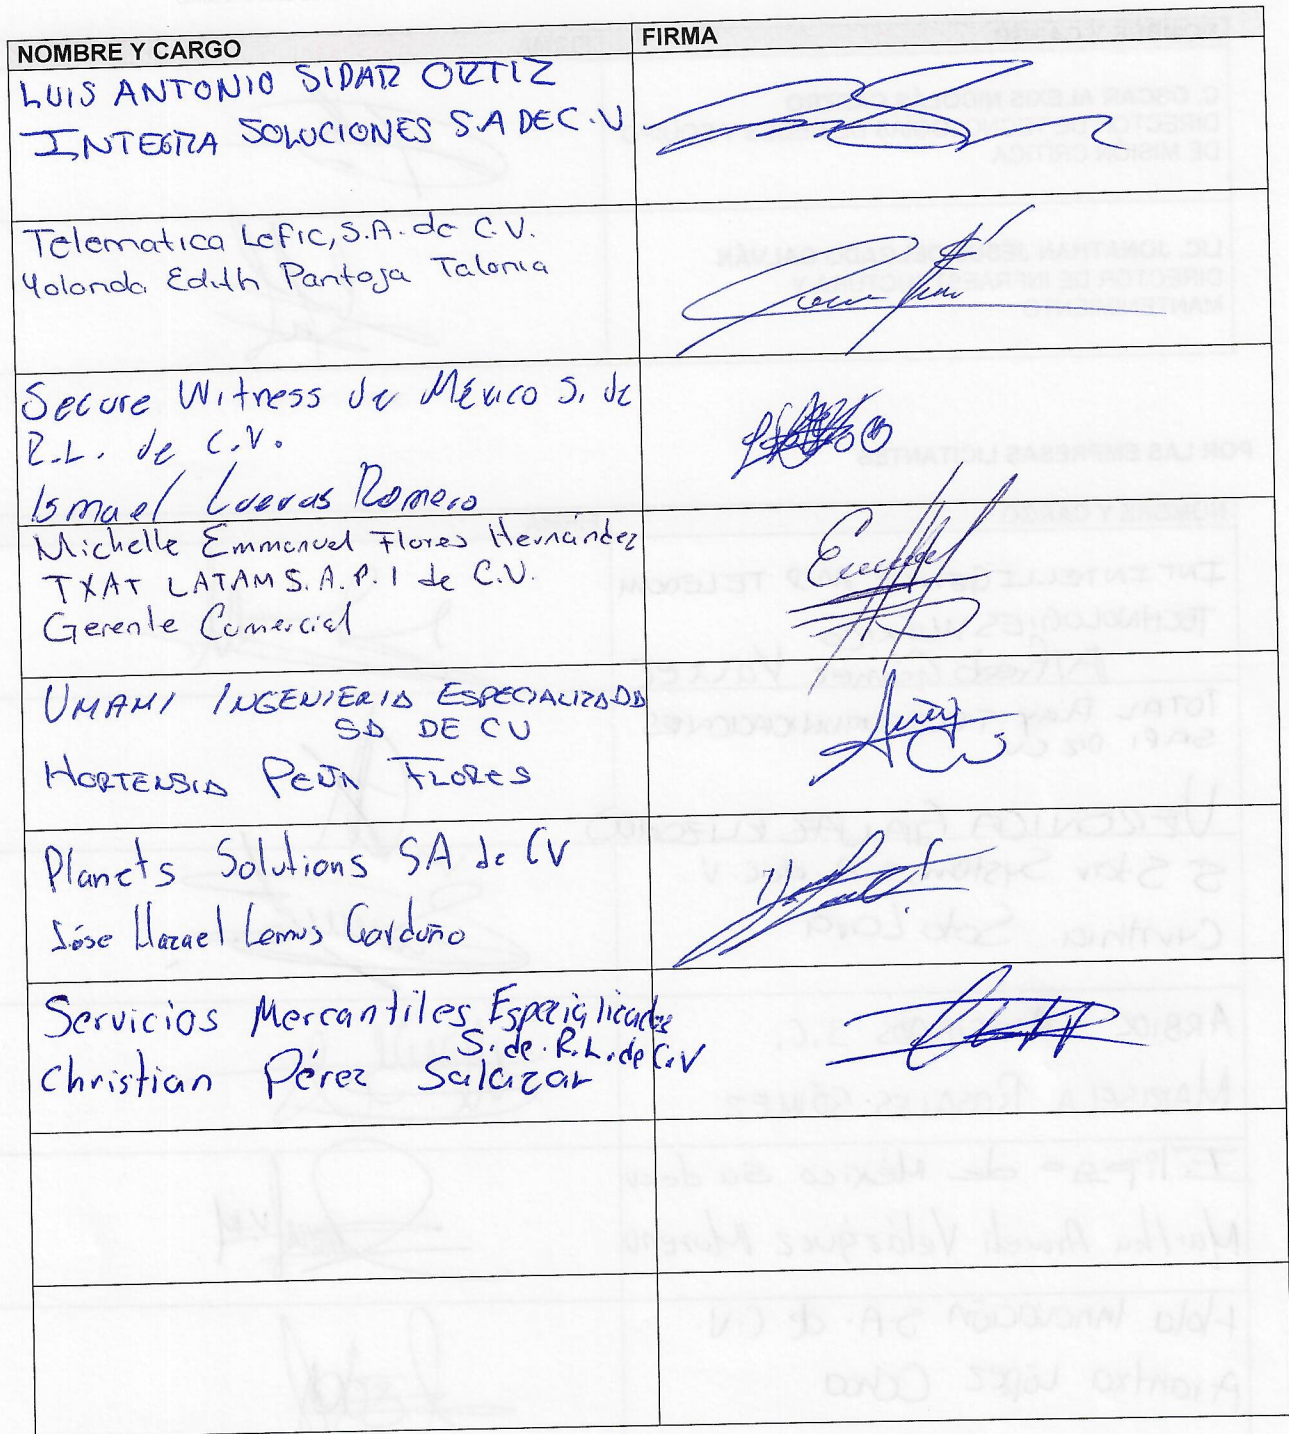 NOMBRE Y CARGO FIRMA
LUIS ANTONIO SIDAR ORTIZ
INTEGRA SOLUCIONES S.A DE C.V
Telematica Lefic, S.A. de C.V.
Yolanda Edith Pantoja Talonia
Secure Witness de México S. de
R.L. de C.V.
Ismael Cuevas Romero
Michelle Emmanuel Flores Hernández
TXAT LATAM S.A.P.I de C.V.
Gerente Comercial
UMAMI INGENIERIA ESPECIALIZADA
SA DE CV
HORTENSIA PEÑA FLORES
Planets Solutions SA de CV
Jóse Hazael Lemus Garduño
Servicios Mercantiles Especializados
S. de. R.L. de C.V
Christian Pérez Salazar